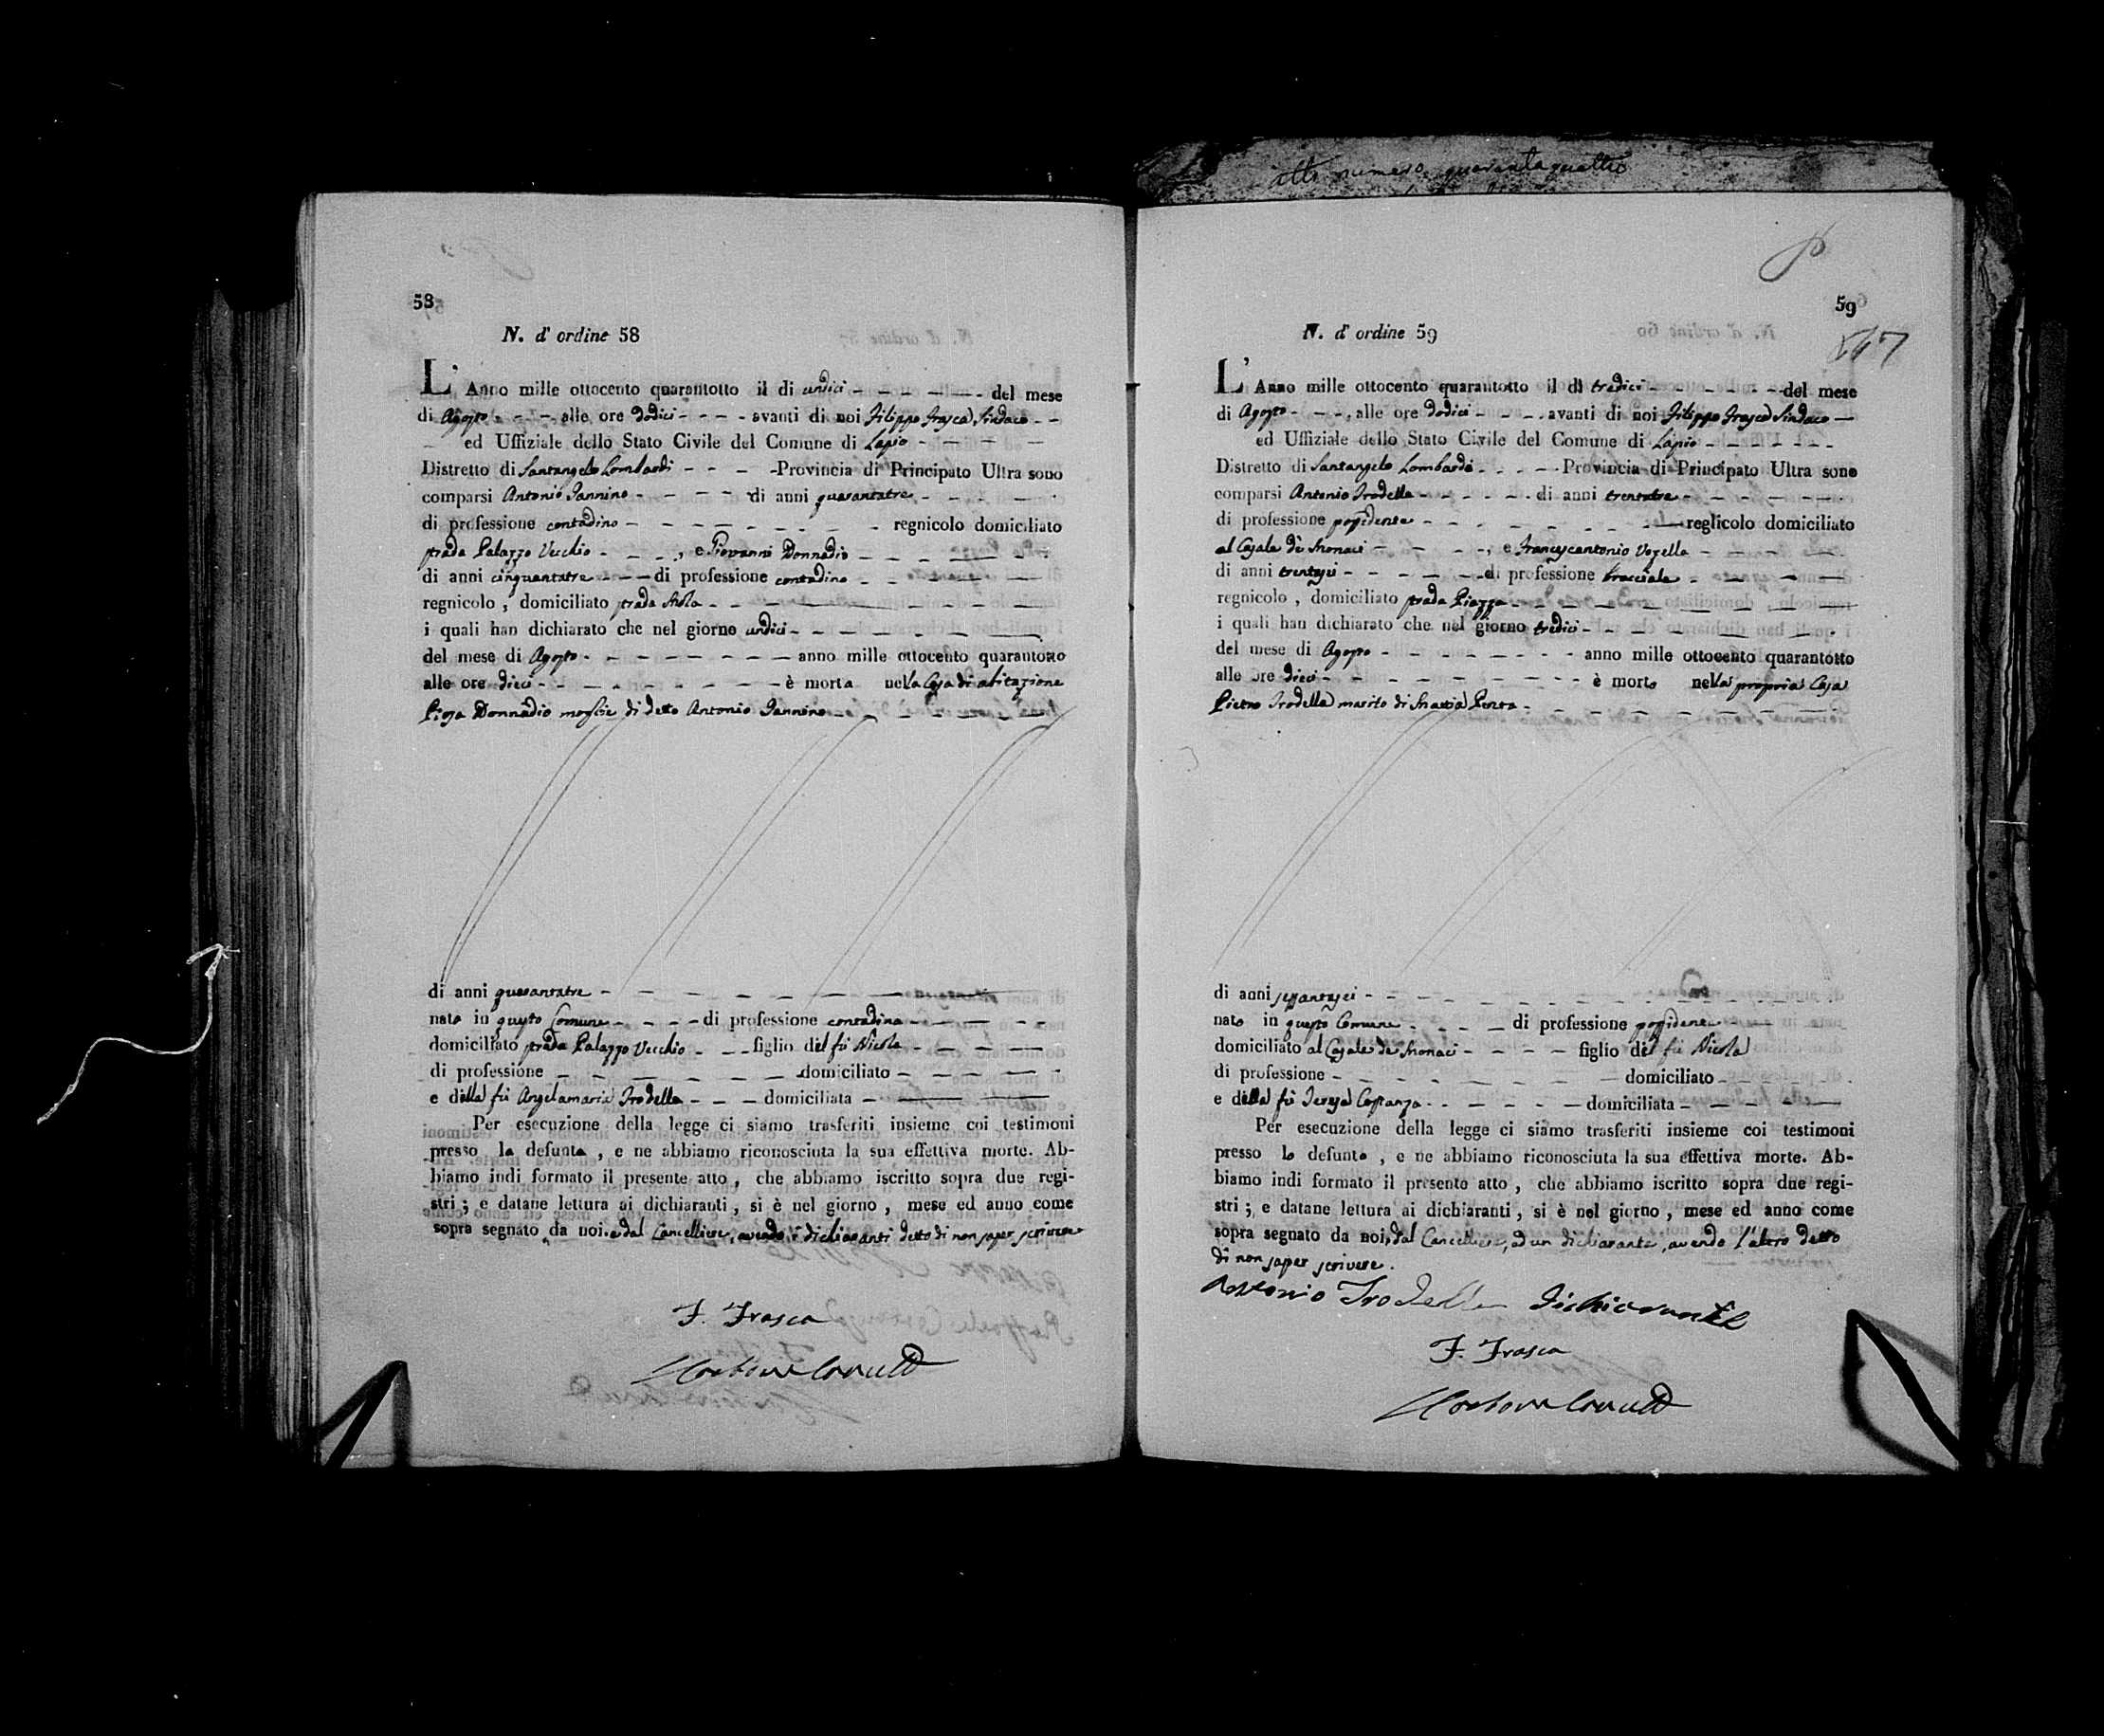 atto numero quarantaquattro
58
N. d' ordine 58
L' Anno mille ottocento quarantotto il di undici del mese
di Agosto alle ore dodici avanti di noi Filippo Frasca Sindaco
ed Uffiziale dello Stato Civile del Comune di Lapio
Distretto di Santangelo Lombardi Provincia di Principato Ultra sono
comparsi Antonio Iannino di anni quarantatre
di professione contadino regnicolo domiciliato
strada Palazzo Vecchio , e Giovanni Donnadio
di anni cinquantatre di professione contadino
regnicolo , domiciliato strada
i quali han dichiarato che nel giorno undici
del mese di Agosto anno mille ottocento quarantotto
alle ore dieci è morta nella Casa di abitazione
Donnadio moglie di detto Antonio Iannino
di anni quarantatre
nata in questo Comune di professione contadina
domiciliato strada Palazzo Vecchio figlio del fù Nicola
di professione domiciliato
e della fù Angelamaria Trodella domiciliata
Per esecuzione della legge ci siamo trasferiti insieme coi testimoni
presso la defunta , e ne abbiamo riconosciuta la sua effettiva morte. Ab-
biamo indi formato il presente atto , che abbiamo iscritto sopra due regi-
stri ; e datane lettura ai dichiaranti , si è nel giorno , mese ed anno come
sopra segnato da noi, e dal Cancelliere, avendo i dichiaranti detto di non saper scrivere
F. Frasca
59
N. d' ordine 59
L' Anno mille ottocento quarantotto il di tredici del mese
di Agosto , alle ore dodici avanti di noi Filippo Frasca Sindaco
ed Uffiziale dello Stato Civile del Comune di Lapio
Distretto di Santangelo Lombardi Provincia di Principato Ultra sono
comparsi Antonio Trodella di anni trentatre
di professione possidente reglicolo domiciliato
al Casale de Monaci , e Francescantonio Vozella
di anni trentasei di professione bracciale
regnicolo , domiciliato strada Piazza
i quali han dichiarato che nel giorno tredici
del mese di Agosto anno mille ottocento quarantotto
alle ore dieci è morto nella propria Casa
Pietro Trodella marito di Maria
di anni sessantasei
nato in questo Comune di professione possidente
domiciliato al Casale de Monaci figlio del fù Nicola
di professione domiciliato
e della fù Teresa Costanza domiciliata
Per esecuzione della legge ci siamo trasferiti insieme coi testimoni
presso lo defunto , e ne abbiamo riconosciuta la sua effettiva morte. Ab-
biamo indi formato il presente atto , che abbiamo iscritto sopra due regi-
stri ; e datane lettura ai dichiaranti , si è nel giorno , mese ed anno come
sopra segnato da noi, dal Cancelliere, ad un dichiarante, avendo l'altro detto
di non saper scrivere.
Antonio Trodella dichiarante
F. Frasca